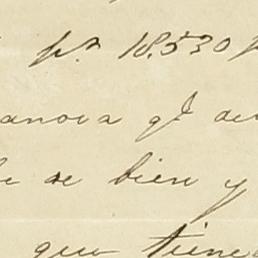 pr. 18.530 p
anova qe de
e se bien y
que tiene